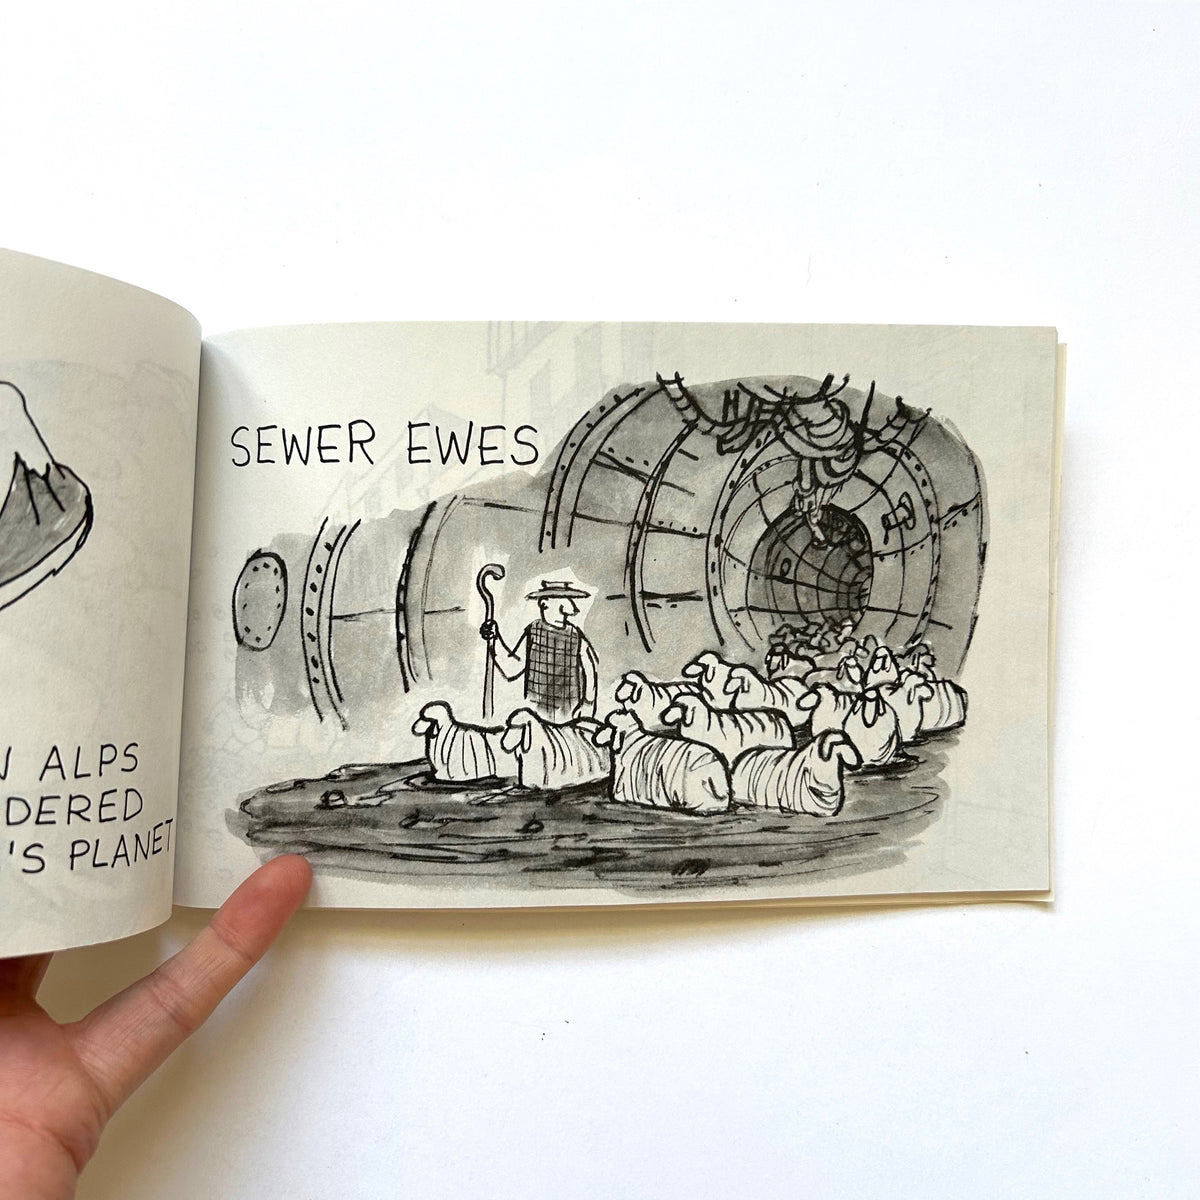 SEWER EWES
ALPS
DERED
'S PLANET